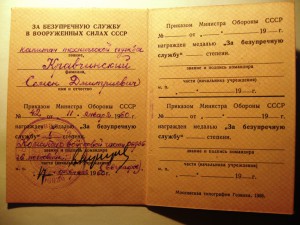 ЗА БЕЗУПРЕЧНУЮ СЛУЖБУ
В ВООРУЖЕННЫХ СИЛАХ СССР
капитан технической службы
звание,
Кравчинский
фамилия,
Семён Дмитриевич
имя и отчество
Приказом Министра Обороны СССР
№ 42 от 11 января 1960 г.
награжден медалью „За безупречную
службу" степени.
Командир войсковой части
звание и подпись командира
части (начальника учреждения)
1960 г.
Приказом Министра Обороны СССР
№ от 19 г.
награжден медалью „За безупречную
службу" степени.
звание и подпись командира
части (начальника учреждения)
19 г.
Приказом Министра Обороны СССР
№ от 19 г.
награжден медалью „За безупречную
службу" степени.
звание и подпись командира
части (начальника учреждения)
19 г.
Московская типография Гознака. 1959.